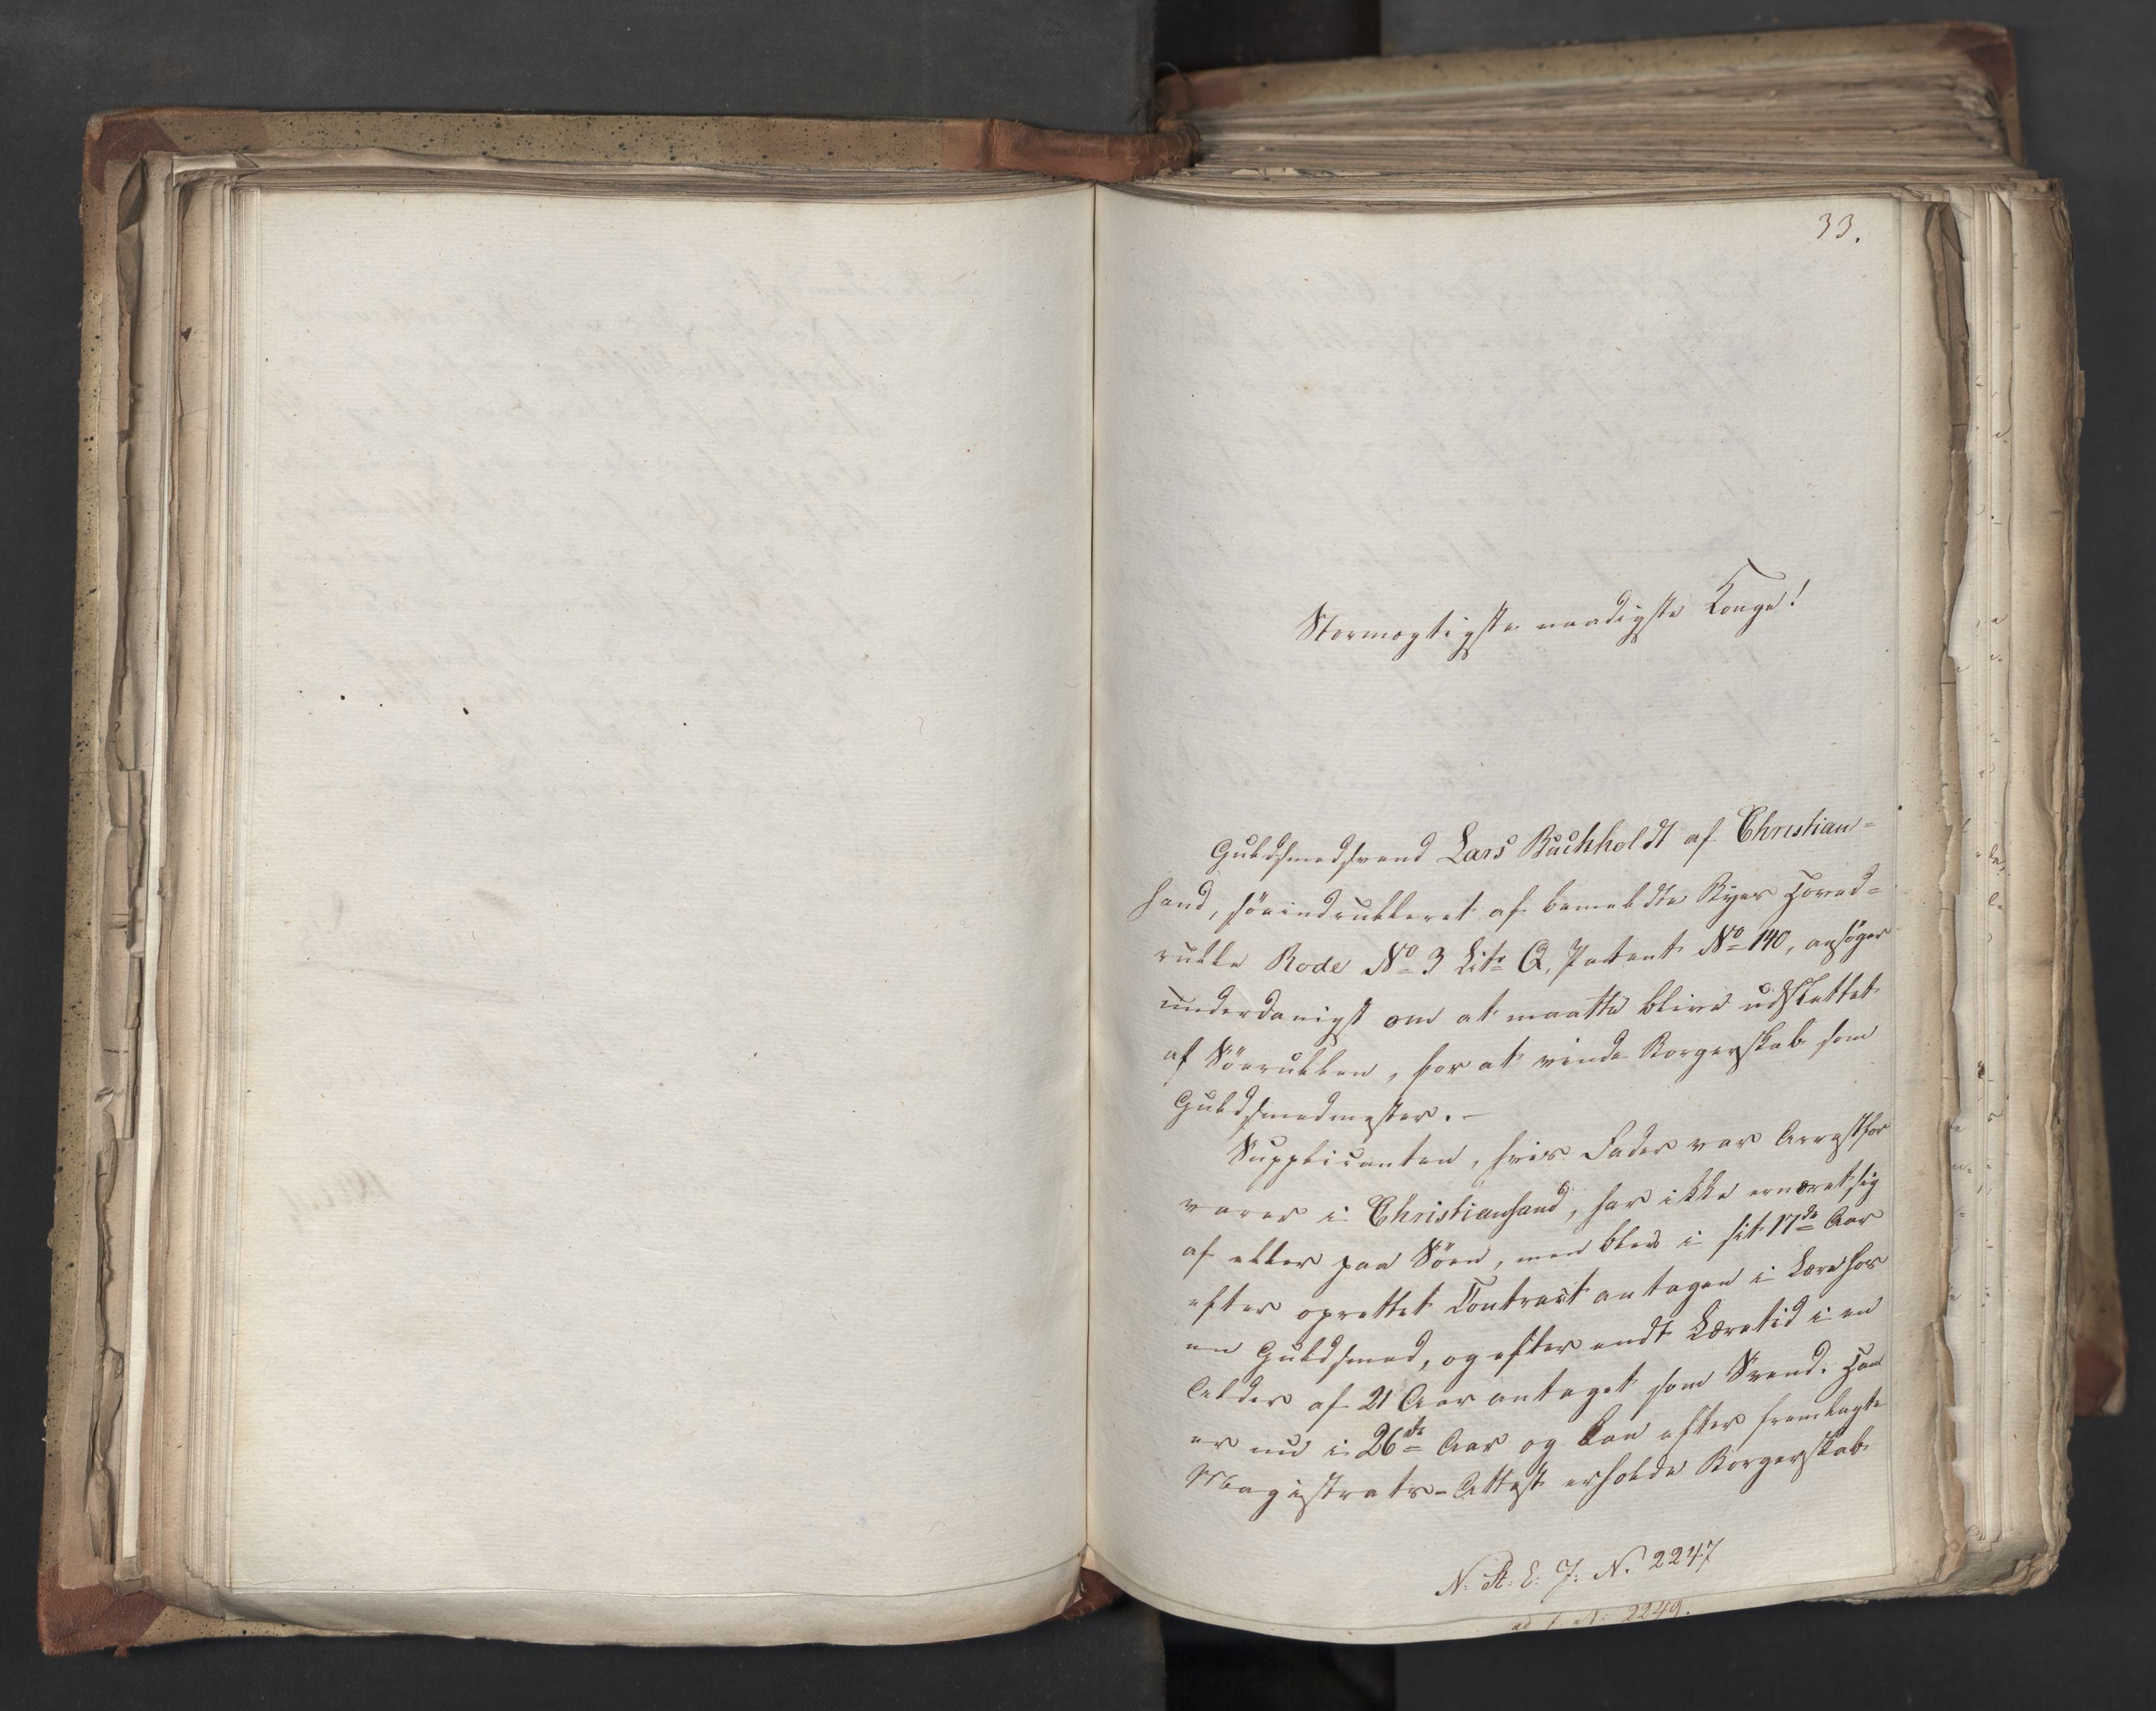 33.
Stormægtigste naadigste Konge!
Guldsmedsvend Lars Buchholdt af Christian-
sand, söeindrulleret af bemeldte Byes Hoved-
rulle Rode No 3 Litr Q, Patent No 140, ansøger
underdanigst om at maatte blive udslettet
af Söerullen, for at vinde Borgerskab som
Guldsmedmester. -
Supplicanten, hvis Fader var Arrestfor
varer i Christiansand, har ikke ernæret sig
af eller paa Söen, men blev i sit 17de Aar
efter oprettet Contract antagen i Lære hos
en Guldsmed, og efter endt Læretid i en
Alder af 21 Aar antaget som Svend. Han
er nu i 26de Aar og kan efter fremlagte
Magistrats-Attest erholde Borgerskab
N. St. E. J: N. 2247
ad J. N: 2249.